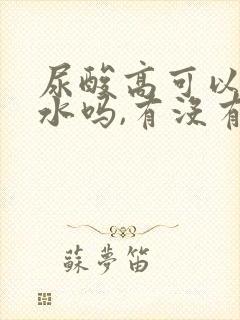 尿酸高可以
水吗,有没有
蘇夢笛